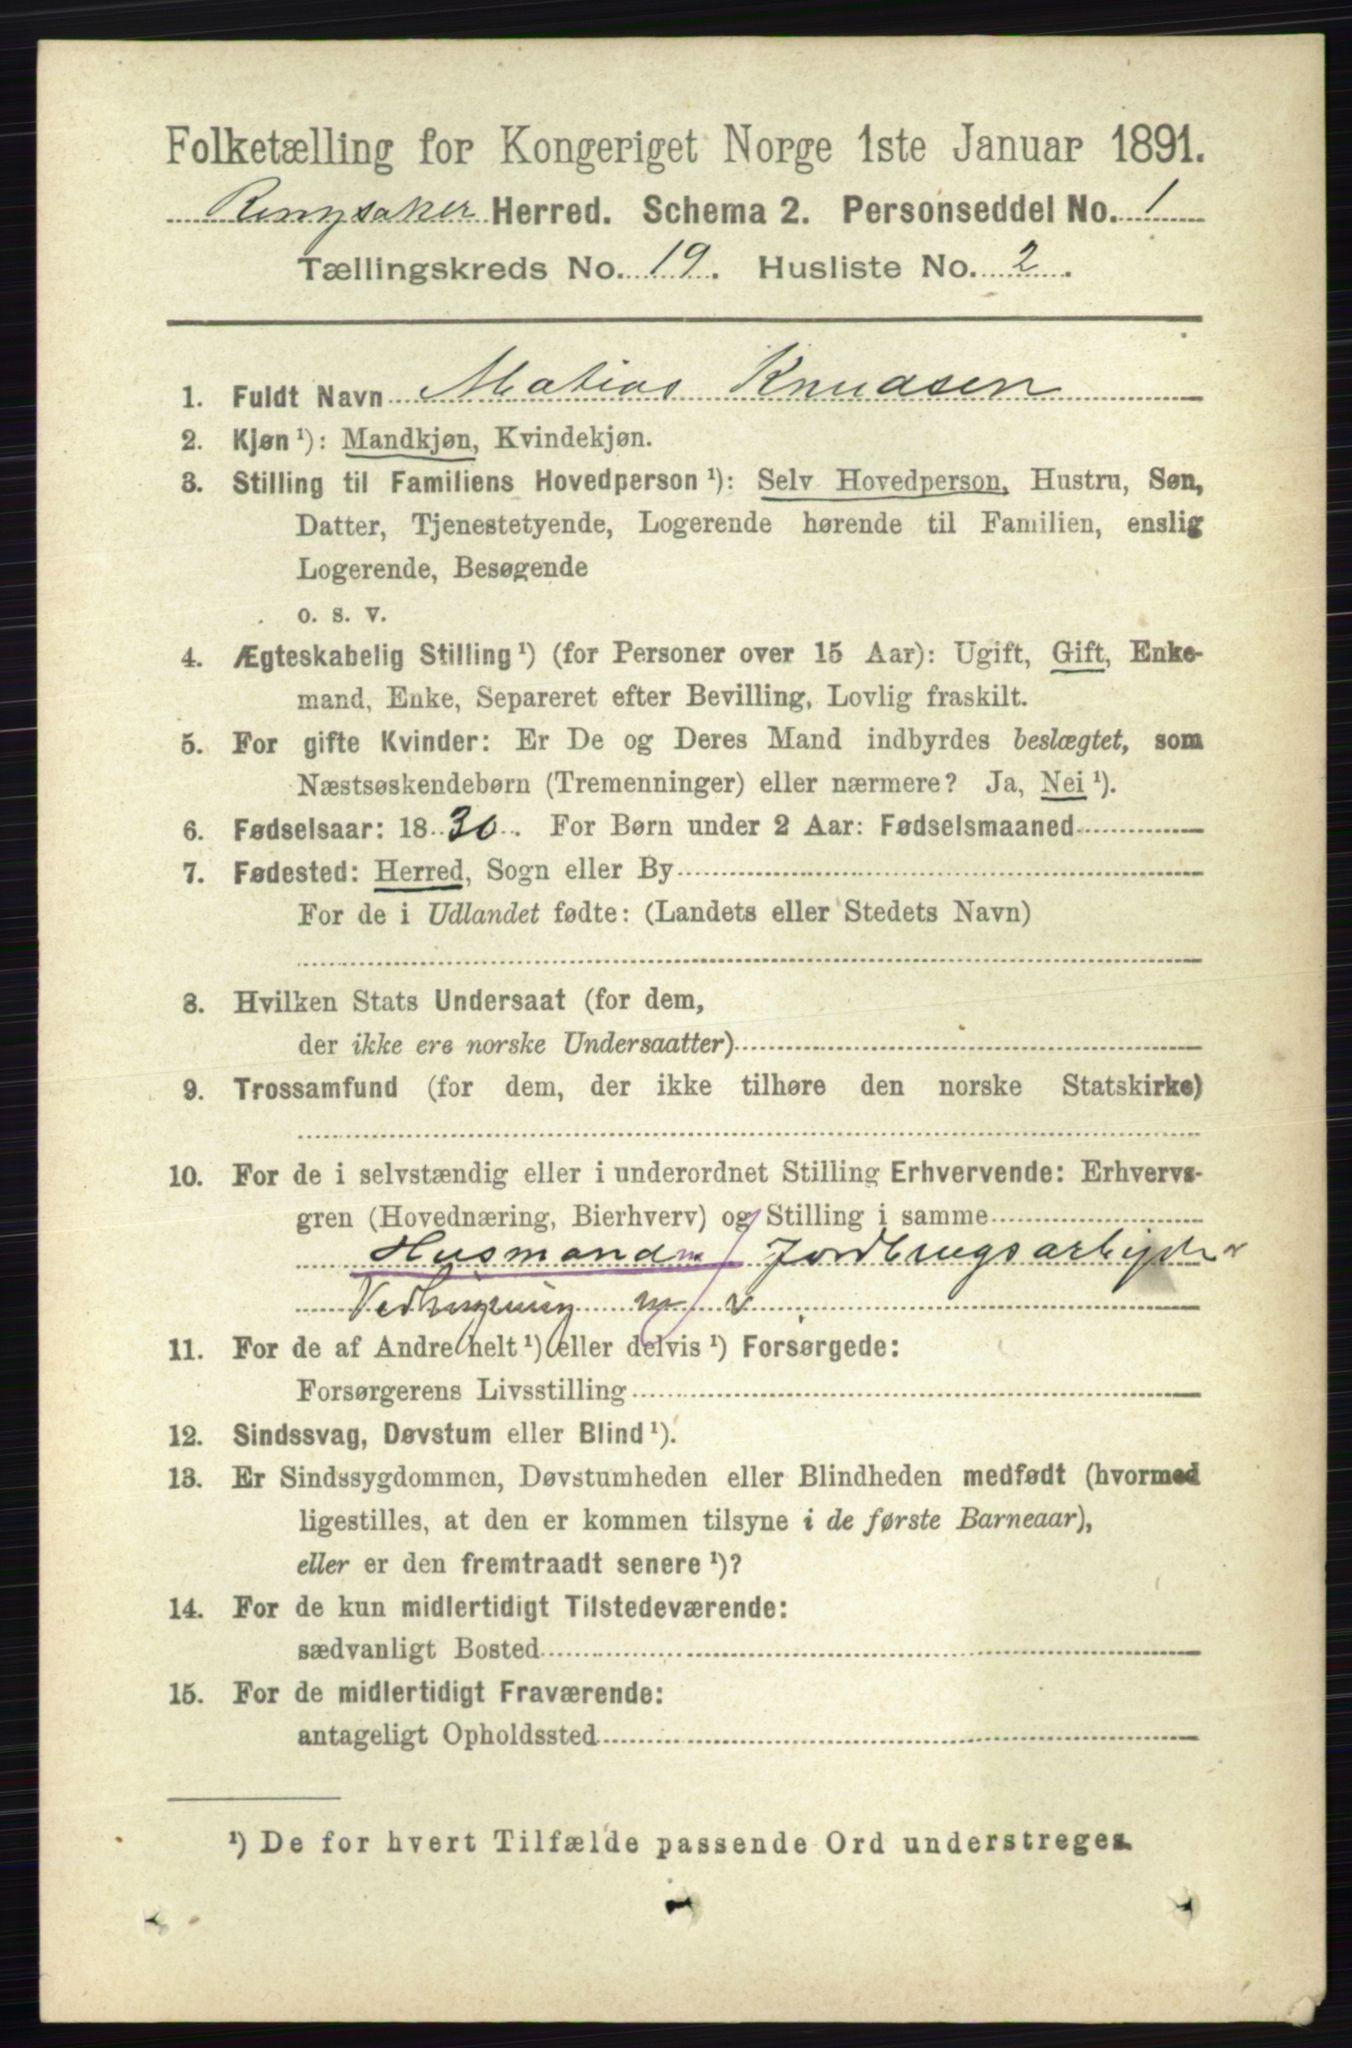 Folketælling for Kongeriget Norge 1ste Januar 1891.
Ringsaker Herred. Schema 2. Personseddel No. 1
Tællingskreds No. 19. Husliste No. 2.
1. Fuldt Navn Matias Knudsen
2. Kjøn ¹): Mandkjøn, Kvindekjøn.
3. Stilling til Familiens Hovedperson ¹): Selv Hovedperson, Hustru, Søn,
Datter, Tjenestetyende, Logerende hørende til Familien, enslig
Logerende, Besøgende
o. s. v.
4. Ægteskabelig Stilling ¹) (for Personer over 15 Aar): Ugift, Gift, Enke-
mand, Enke, Separeret efter Bevilling, Lovlig fraskilt.
5. For gifte Kvinder: Er De og Deres Mand indbyrdes beslægtet, som
Næstsøskendebørn (Tremenninger) eller nærmere? Ja, Nei ¹).
6. Fødselsaar: 1830. For Børn under 2 Aar: Fødselsmaaned
7. Fødested: Herred, Sogn eller By
For de i Udlandet fødte: (Landets eller Stedets Navn)
8. Hvilken Stats Undersaat (for dem,
der ikke ere norske Undersaatter)
9. Trossamfund (for dem, der ikke tilhøre den norske Statskirke)
10. For de i selvstændig eller i underordnet Stilling Erhvervende: Erhvervs-
gren (Hovednæring, Bierhverv) og Stilling i samme
Husmand m/ Jordbrugsarbejde
Vedhugning m v
11. For de af Andre helt ¹) eller delvis ¹) Forsørgede:
Forsørgerens Livsstilling
12. Sindssvag, Døvstum eller Blind ¹).
13. Er Sindssygdommen, Døvstumheden eller Blindheden medfødt (hvormed
ligestilles, at den er kommen tilsyne i de første Barneaar),
eller er den fremtraadt senere ¹)?
14. For de kun midlertidigt Tilstedeværende:
sædvanligt Bosted
15. For de midlertidigt Fraværende:
antageligt Opholdssted
¹) De for hvert Tilfælde passende Ord understreges.